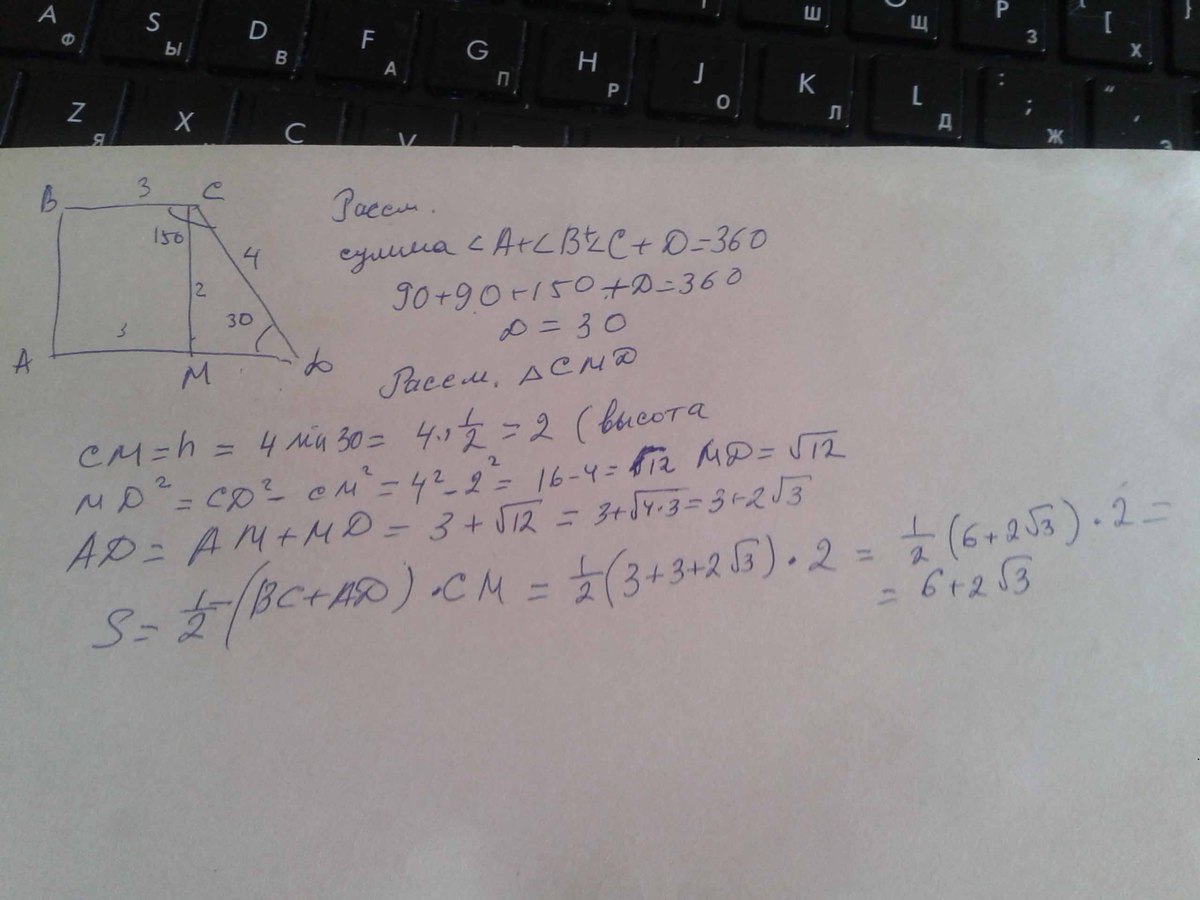 A Ф S Ы D В F А G П H Р J О K Л L Д : ; Ж " ' Э
Ш Щ P З [ Х
Z Я X C V
B 3 C
150 4
2
30
3
A M D
Рассм.
сумма ∠A+∠B+∠C+D=360
90+90+150+D=360
D=30
Рассм. △CMD
CM=h=4 sin 30=4·1/2=2 (высота
MD²=CD²-CM²=4²-2²=16-4=√12 MD=√12
AD=AM+MD=3+√12=3+√4·3=3+2√3
S=1/2(BC+AD)·CM=1/2(3+3+2√3)·2=1/2(6+2√3)·2=
=6+2√3